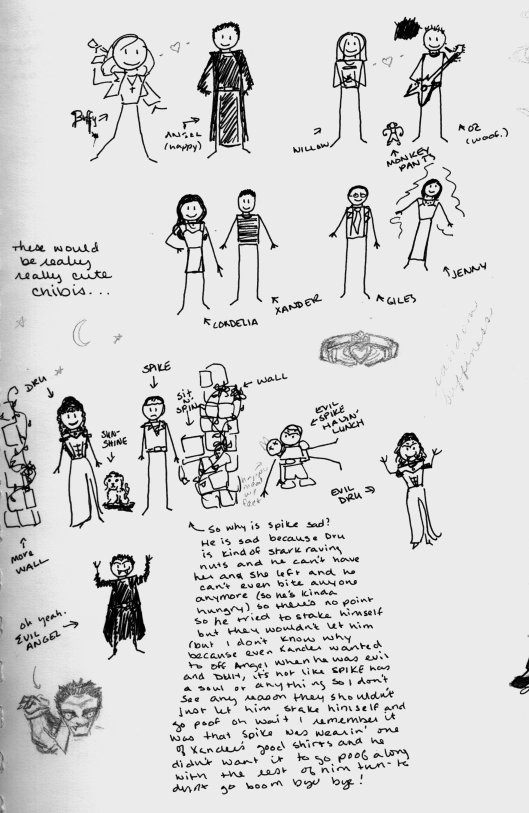 Buffy
ANGEL
(happy)
WILLOW
MONKEY
PANTS
OZ
(woof.)
These would
be really
really cute
chibis...
CORDELIA
XANDER
GILES
JENNY
random
DRU
SPIKE
SUN-
SHINE
SIT
N'
SPIN
WALL
EVIL
SPIKE
HAVIN'
LUNCH
EVIL
DRU
MORE
WALL
oh yeah.
EVIL
ANGEL
So why is Spike sad?
He is sad because Dru
is kind of stark raving
nuts and he can't have
her and she left and he
can't even bite anyone
anymore (so he's kinda
hungry) so there's no point
so he tried to stake himself
but they wouldn't let him
(but I don't know why
because even Xander wanted
to off Angel when he was evil
and DUH, it's not like SPIKE has
a soul or anything so I don't
see any reason they shouldn't
just let him stake himself and
go poof oh wait I remember it
was that Spike was wearin' one
of Xander's good shirts and he
didn't want it to go poof along
with the rest of him
go boom bye bye!